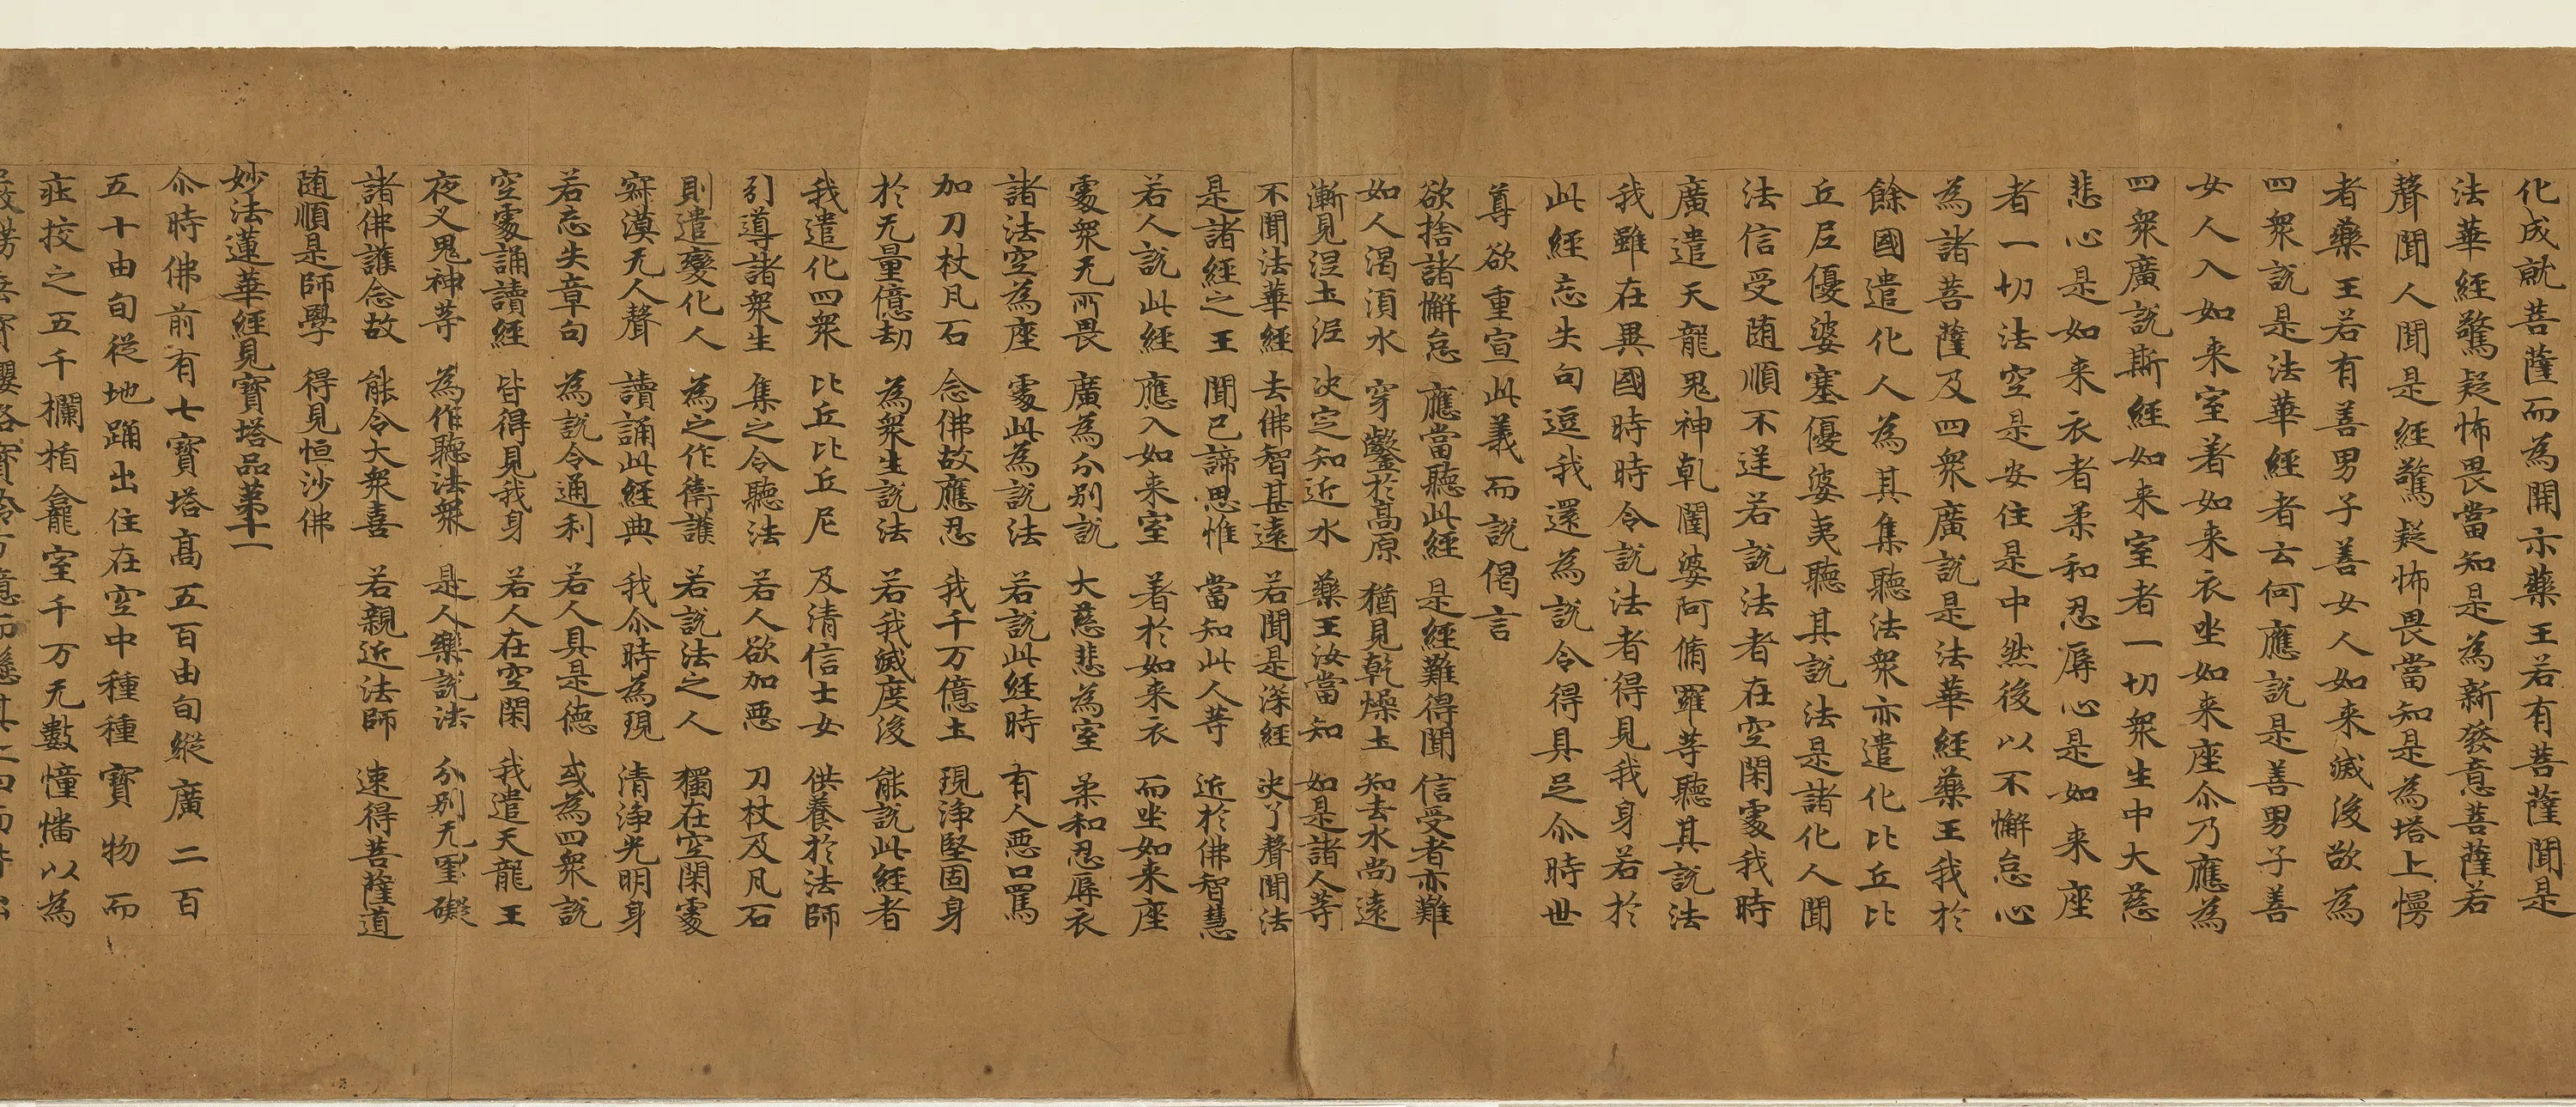 化成就菩薩而為開示藥王若有菩薩聞是
法華經驚疑怖畏當知是為新發意菩薩若
聲聞人聞是經驚疑怖畏當知是為增上慢
者藥王若有善男子善女人如来滅後欲為
四衆說是法華經者云何應說是善男子善
女人入如来室著如来衣坐如来座尒乃應為
四衆廣說斯經如来室者一切衆生中大慈
悲心是如来衣者柔和忍辱心是如来座
者一切法空是安住是中然後以不懈怠心
為諸菩薩及四衆廣說是法華經藥王我於
餘國遣化人為其集聽法衆亦遣化比丘比
丘尼優婆塞優婆夷聽其說法是諸化人聞
法信受随順不逆若說法者在空閑處我時
廣遣天龍鬼神乹闥婆阿脩羅等聽其說法
我雖在異國時時令說法者得見我身若於
此經忘失句逗我還為說令得具足尒時世
尊欲重宣此義而說偈言
欲捨諸懈怠 應當聽此經 是經難得聞 信受者亦難
如人渴須水 穿鑿於高原 猶見乹燥土 知去水尚遠
漸見濕土泥 决定知近水 藥王汝當知 如是諸人等
不聞法華經 去佛智甚遠 若聞是深經 决了聲聞法
是諸經之王 聞已諦思惟 當知此人等 近於佛智慧
若人說此經 應入如来室 著於如来衣 而坐如来座
處衆无所畏 廣為分别說 大慈悲為室 柔和忍辱衣
諸法空為座 處此為說法 若說此經時 有人惡口罵
加刀杖瓦石 念佛故應忍 我千万億土 現淨堅固身
於无量億劫 為衆生說法 若我滅度後 能說此經者
我遣化四衆 比丘比丘尼 及清信士女 供養於法師
引導諸衆生 集之令聽法 若人欲加惡 刀杖及瓦石
則遣變化人 為之作衛護 若說法之人 獨在空閑處
寂漠无人聲 讀誦此經典 我尒時為現 清淨光明身
若忘失章句 為說令通利 若人具是德 或為四衆說
空處誦讀經 皆得見我身 若人在空閑 我遣天龍王
夜叉鬼神等 為作聽法衆 是人樂說法 分别无罣礙
諸佛護念故 能令大衆喜 若親近法師 速得菩薩道
随順是師學 得見恒沙佛
妙法蓮華經見寶塔品苐十一
尒時佛前有七寶塔高五百由旬縱廣二百
五十由旬從地踊出住在空中種種寶物而
莊挍之五千欄楯龕室千万无數幢幡以為